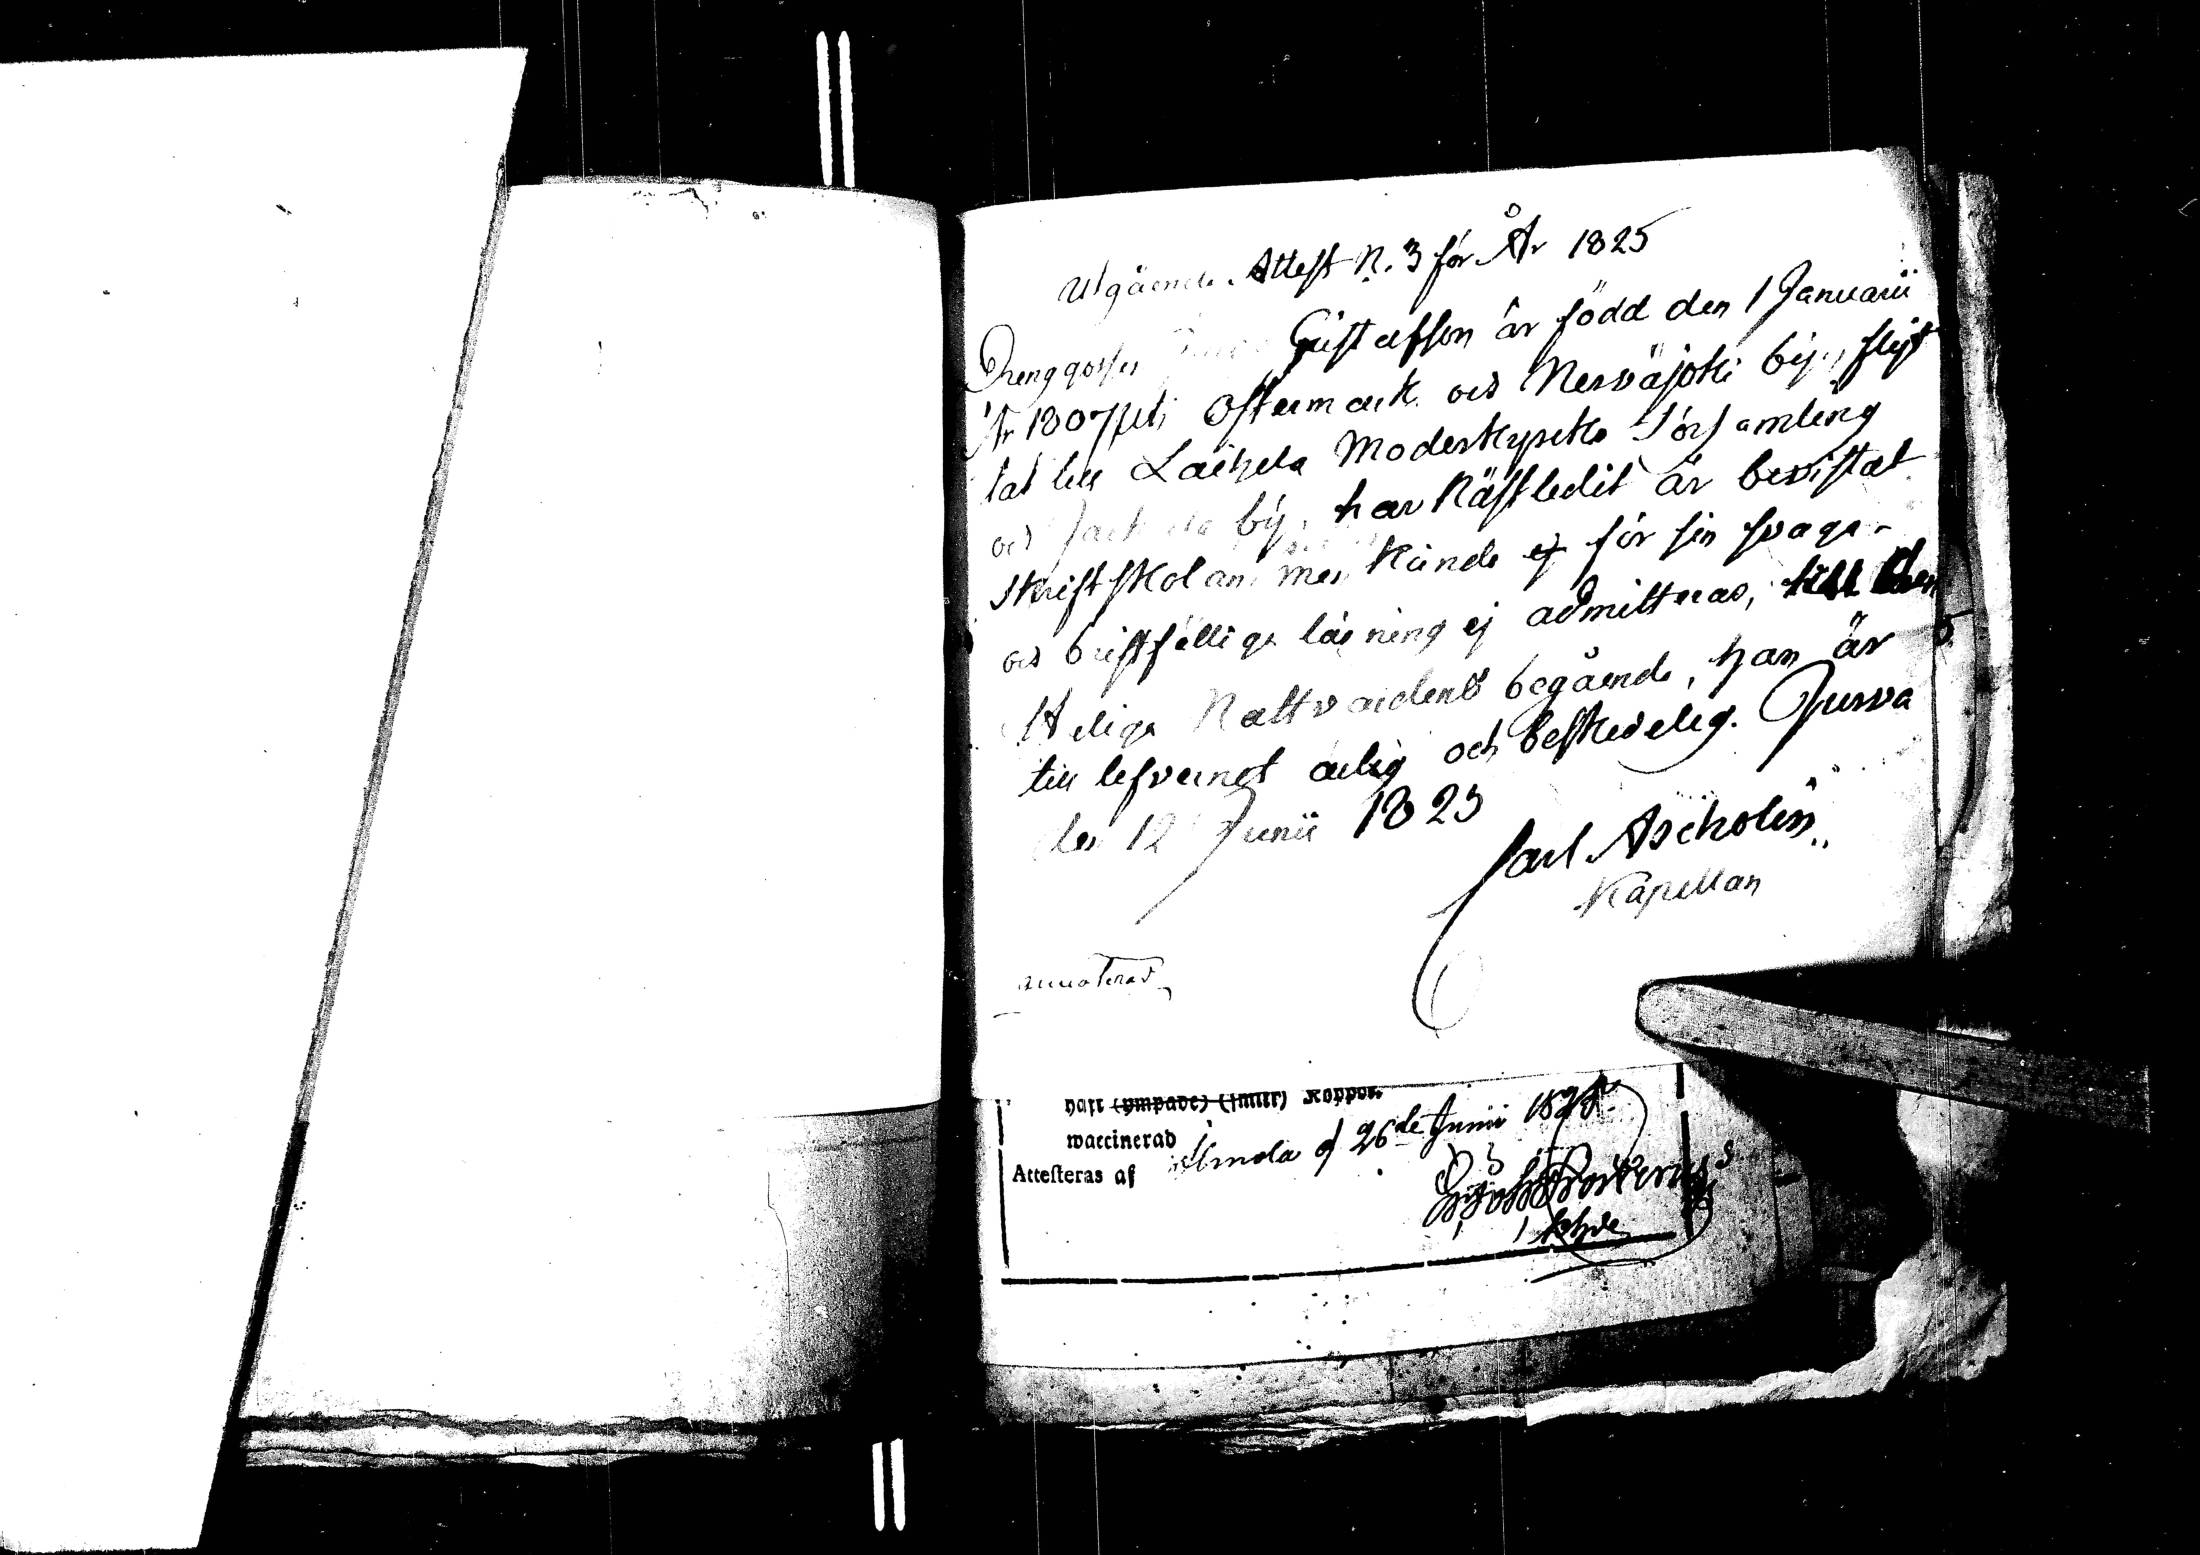 Utgående Attest N. 3 för År 1825
Drenggossen Gustafsson är född den 1 Januarii
År 1807 uti Östermark och Nerväjoki by, flyt
tat till Laihela Moderkyrcko Församling
och by, har näst ledit år bevistat
Skriftskolan men kunde ej för sin svaga
och bristfälliga läsning ej admitteras, till den
Heliga Nattvardens begående, han är
till lefvernet ärlig och beskedelig. Jurva
den 12 Junii 1825
Carl Ascholin
Kapellan
annoterad
haft (ympade) (smitt) Koppor.
waccinerad
Attesteras af Ilmola d 26de Junii 1825